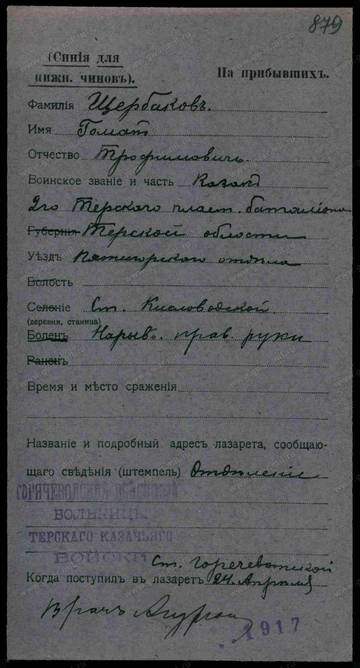 879
(Синія для
нижн. чиновъ).
На прибывшихъ.
Фамилія Щербаковъ.
Имя Гомат
Отчество Трофимовичъ
Воинское званіе и часть Казакъ
2го Терского пласт. баталіона
Губернія Терской области
Уѣздъ Пятигорского отдѣла
Волость
Селеніе Ст. Кисловодской
(деревня, станица)
Боленъ Нарывъ прав. руки
Раненъ
Время и мѣсто сраженія
Названіе и подробный адресъ лазарета, сообщаю-
щаго свѣдѣнія (штемпель) Отдѣленіе
ГОРЯЧЕВОДСКАЯ
БОЛЬНИЦА
ТЕРСКАГО КАЗАЧЬЯГО
ВОЙСКА
Ст. Горячеводской
Когда поступилъ въ лазаретъ 24 Апрѣля
1917
Врачъ